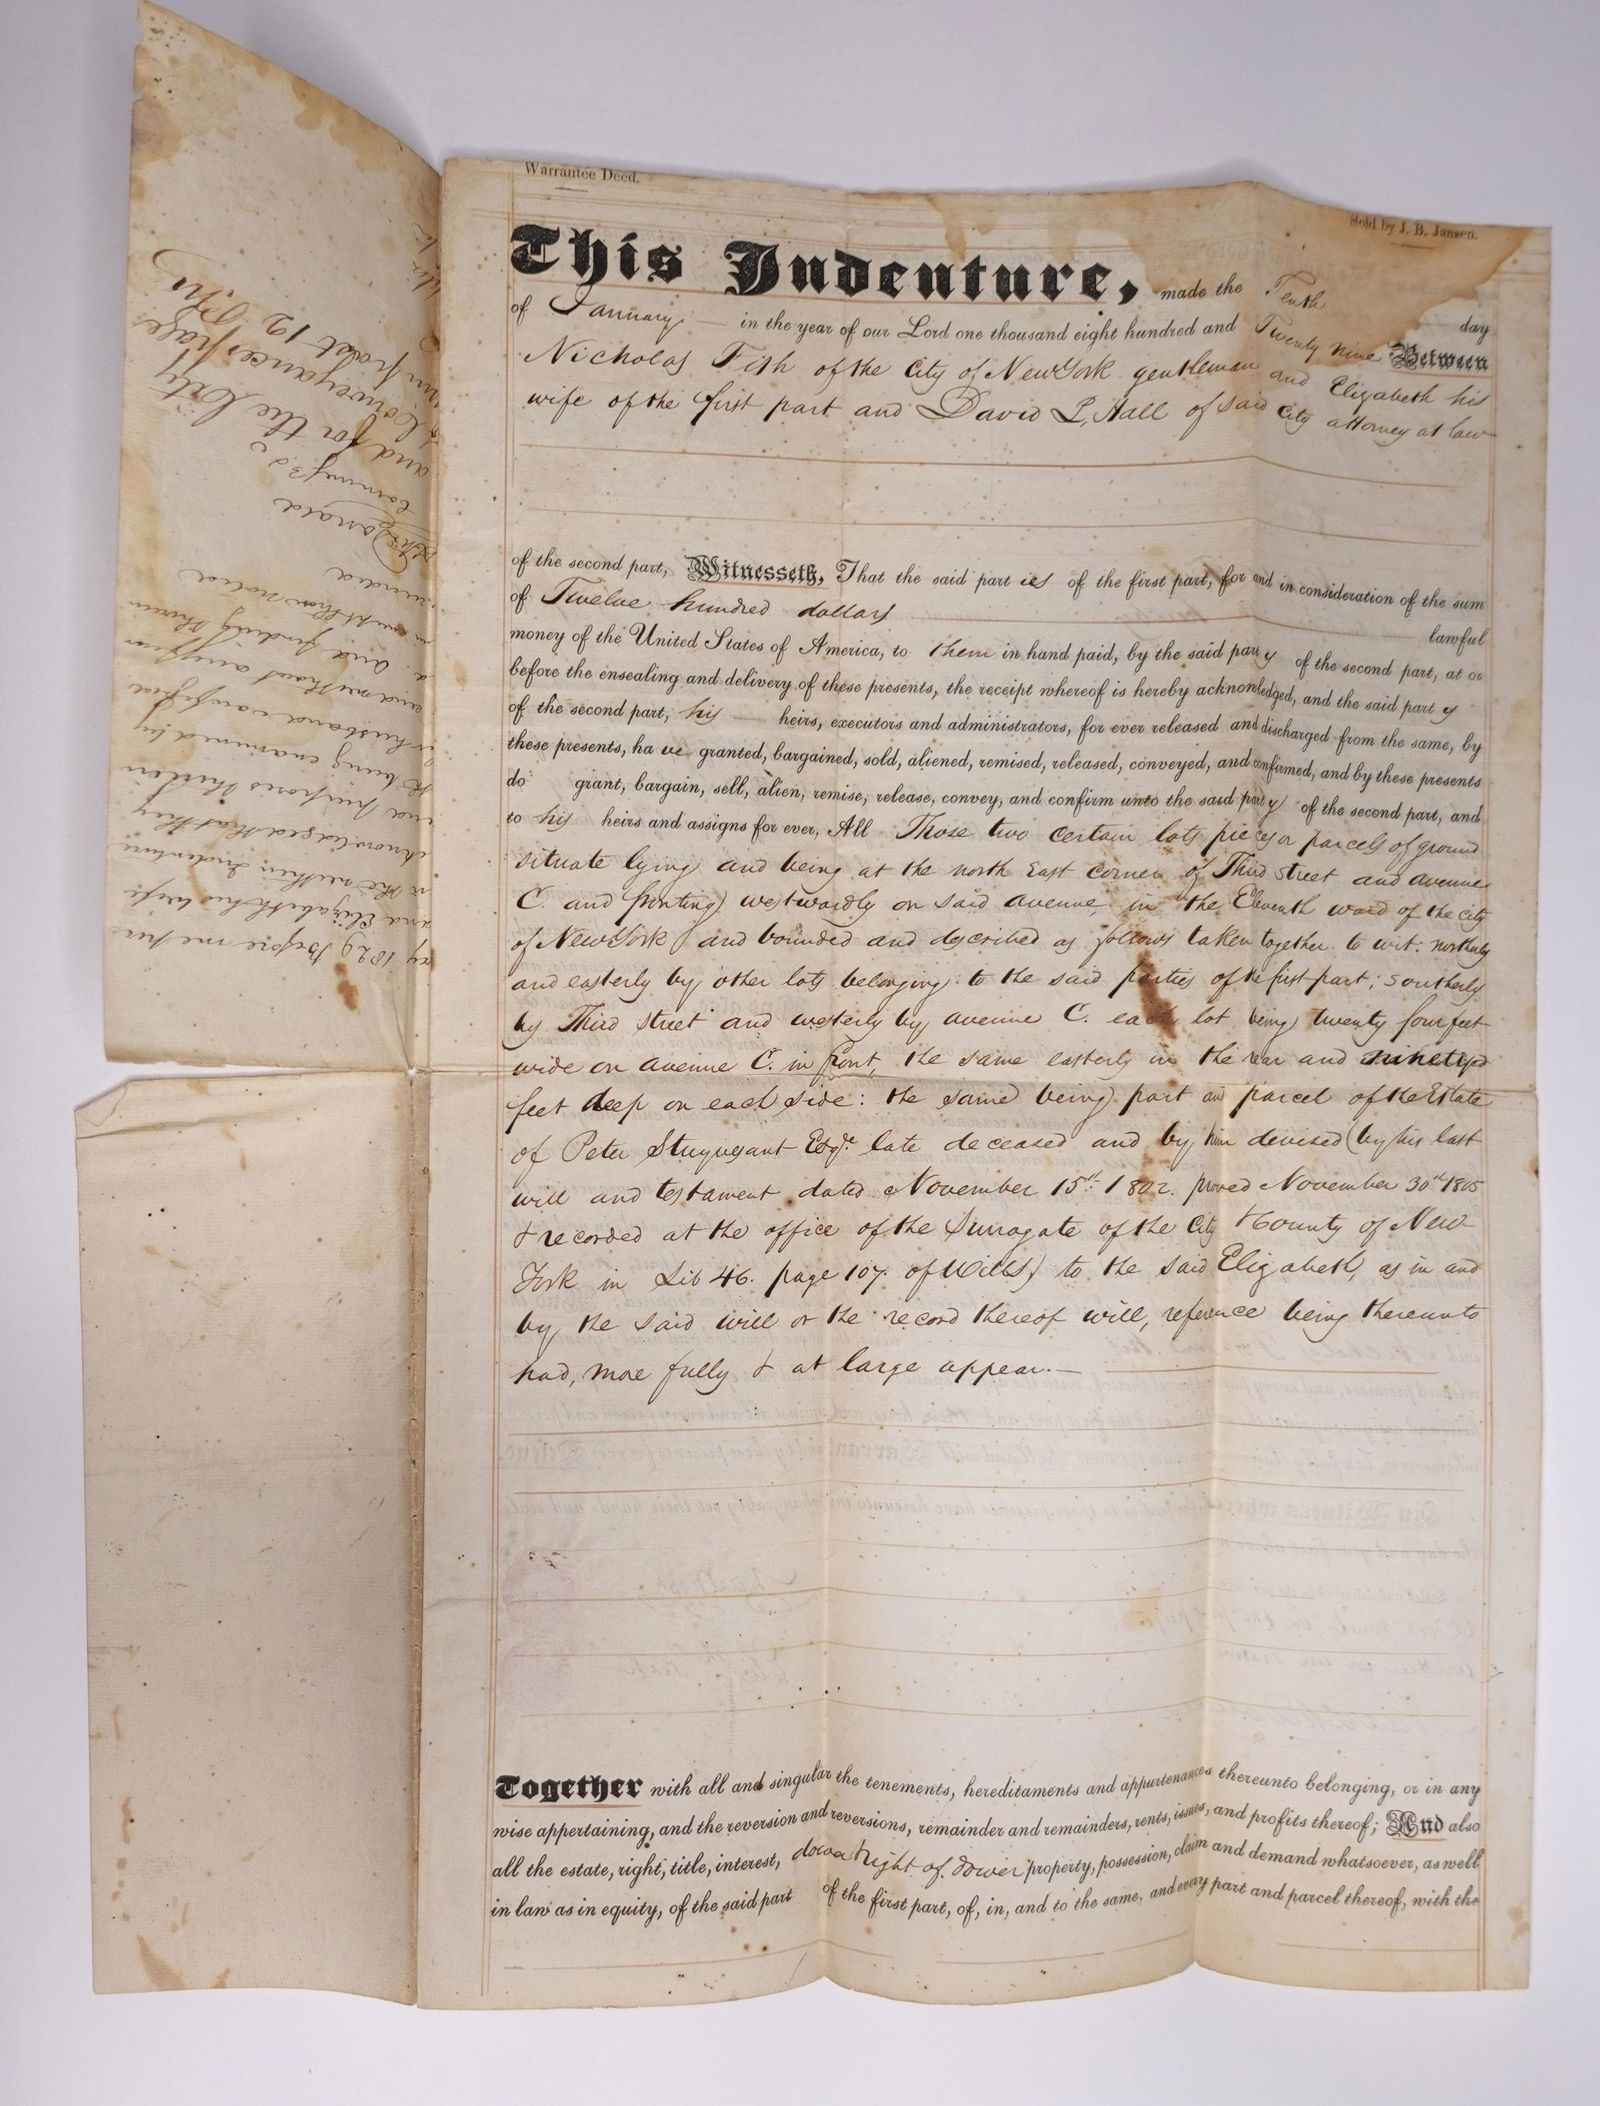 Warrantee Deed.
Sold by J. B. Jansen.
This Indenture, made the Tenth day
of January in the year of our Lord one thousand eight hundred and Twenty nine Between
Nicholas Fish of the City of New York gentleman and Elizabeth his
wife of the first part and David P. Hall of said City attorney at law
of the second part, Witnesseth, That the said part ies of the first part, for and in consideration of the sum
of Twelve hundred dollars lawful
money of the United States of America, to them in hand paid, by the said party of the second part, at or
before the ensealing and delivery of these presents, the receipt whereof is hereby acknowledged, and the said party
of the second part, his heirs, executors and administrators, for ever released and discharged from the same, by
these presents, ha ve granted, bargained, sold, aliened, remised, released, conveyed, and confirmed, and by these presents
do grant, bargain, sell, alien, remise, release, convey, and confirm unto the said party of the second part, and
to his heirs and assigns for ever, All Those two certain lots pieces or parcels of ground
situate lying and being at the north East corner of Third Street and avenue
C. and fronting westwardly on said avenue, in the Eleventh ward of the city
of New York and bounded and described as follows taken together to wit: northerly
and easterly by other lots belonging to the said parties of the first part; southerly
by Third street and westerly by avenue C. each lot being twenty four feet
wide on avenue C. in front, the same easterly in the rear and
feet deep on each side: the same being part and parcel of the Estate
of Peter Stuyvesant Esqr. late deceased and by him devised (by his last
will and testament dated November 15th 1802. proved November 30th 1805
& recorded at the office of the Surrogate of the City & County of New
York in Lib 46. page 107. of Wills) to the said Elizabeth, as in and
by the said will or the record thereof will, reference being thereunto
had, more fully & at large appear.—
Together with all and singular the tenements, hereditaments and appurtenances thereunto belonging, or in any
wise appertaining, and the reversion and reversions, remainder and remainders, rents, issues, and profits thereof; And also
all the estate, right, title, interest, dower right of dower property, possession, claim and demand whatsoever, as well
in law as in equity, of the said part of the first part, of, in, and to the same, and every part and parcel thereof, with the
ry 1829 Before me
and Elizabeth his wife
in the within Indenture
acknowledged that they
and purposes therein
being examined by
husband
and without any fear
and finding
and for the City
of Conveyances page
past 12